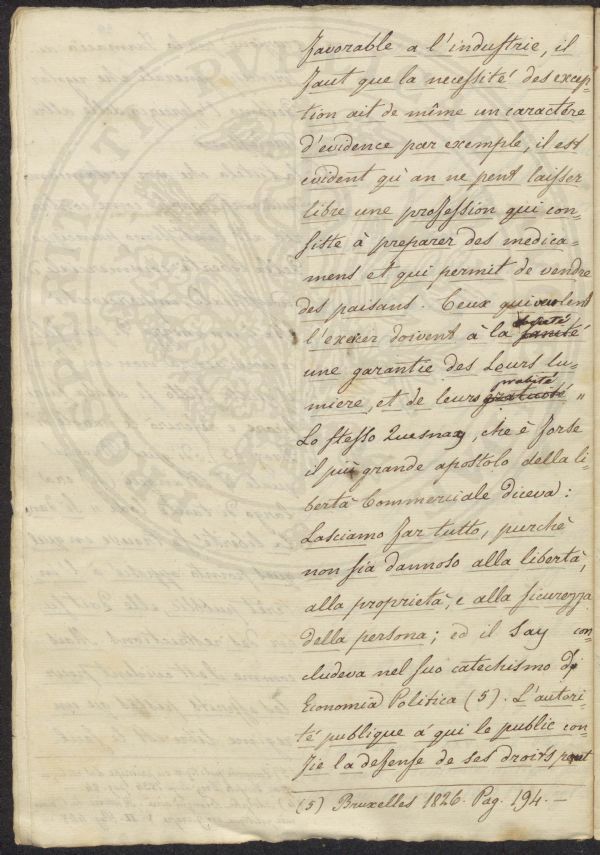 favorable a l'industrie, il
faut que la necessité des excep-
tion ait de même un caractère
d'evidence par exemple, il est
evident qu'an ne pent laisser
libre une profession qui con-
siste à preparer des medica-
mens et qui permit de vendre
des paisans. Ceux qui veulent
l'exercer doivent à la société
une garantie des Leurs lu-
miere, et de leurs probité "
Lo stesso Quesnay, che è forse
il più grande apostolo della li-
bertà Commerciale diceva:
Lasciamo far tutto, purchè
non sia dannoso alla libertà,
alla proprietà, e alla sicurezza
della persona; ed il Say con-
cludeva nel suo catechismo di
Economia Politica (5). L'autori-
té publique á qui le public con-
fie la defense de ses droits peut
(5) Bruxelles 1826. Pag. 194. —